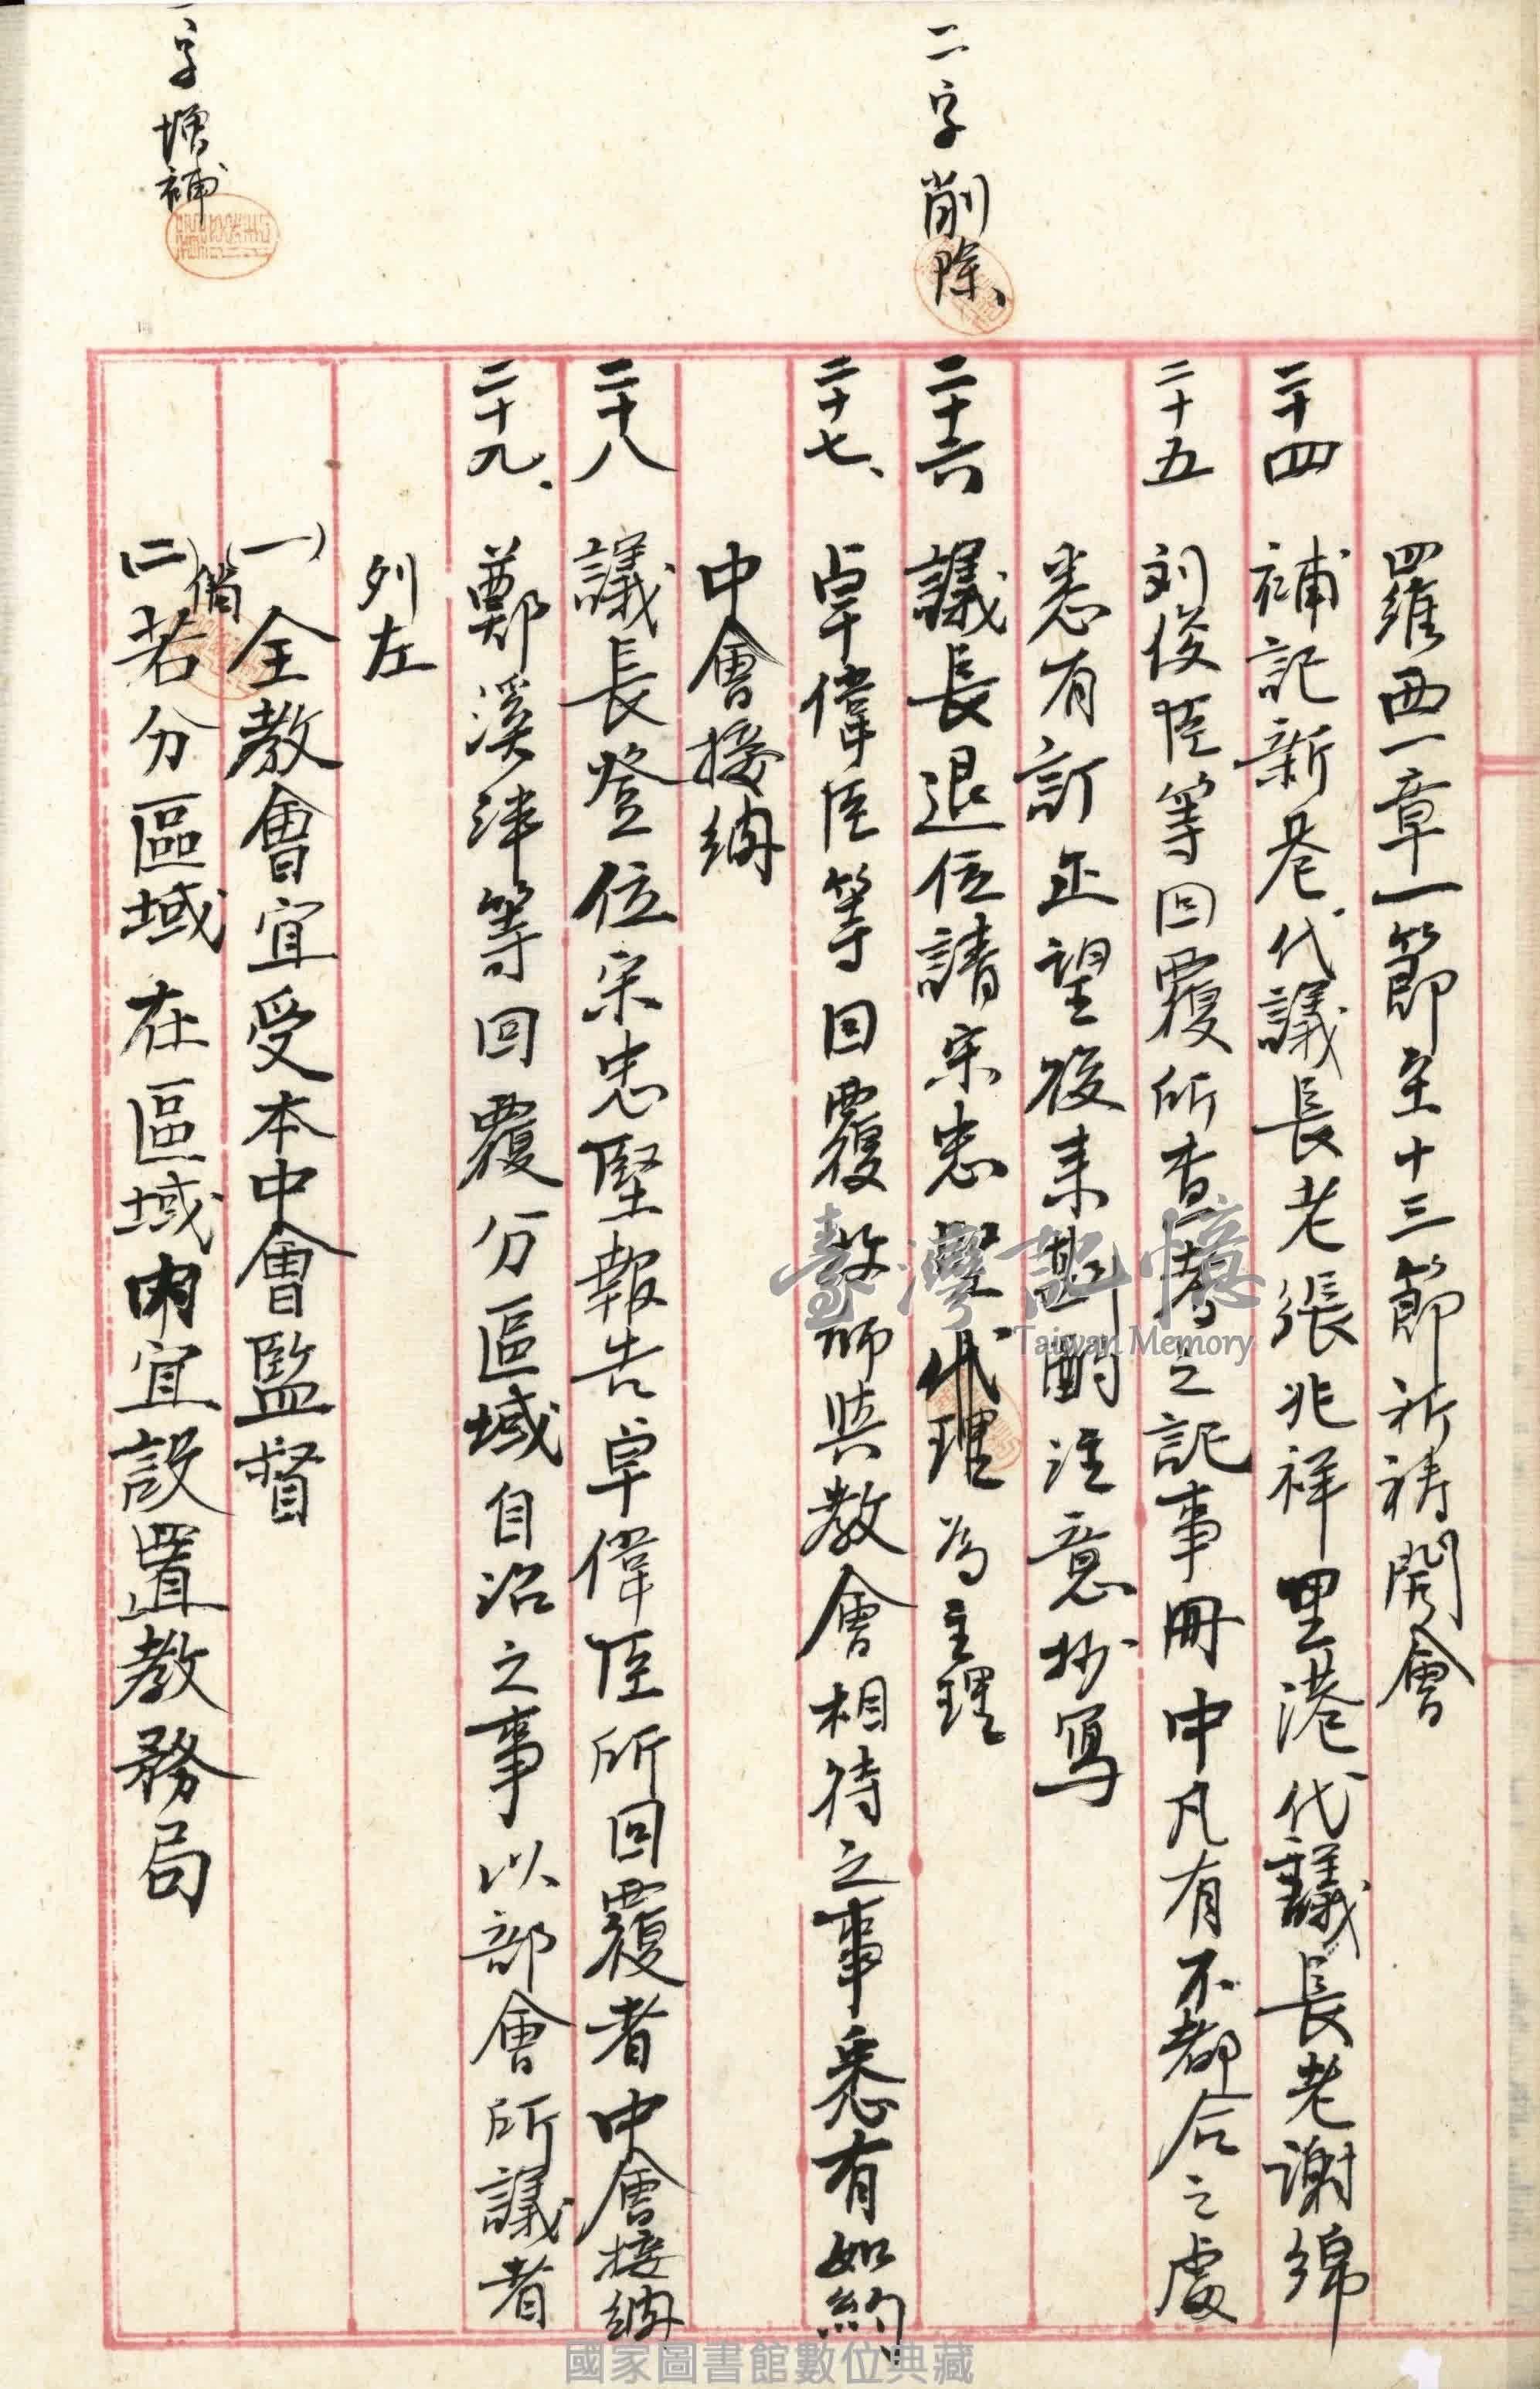 二字削除、
一字增補
四羅西一章一節至十三節祈禱開會
二十四 補記新巷代議長老張兆祥里港代議長老謝綿
二十五 刘俊臣等回覆所查考之記事冊中凡有不都合之處
悉有訂正望後来斟酌注意抄寫
二十六 議長退位請宗忠堅代理為主理
二十七、卓偉臣等回覆教師與教會相待之事悉有如約
中會接納
二十八 議長登位宗忠堅報告卓偉臣所回覆者中會接納
二十九、鄭溪泮等回覆分區域自治之事以部會所議者
列左
(一)全教會宜受本中會監督
(二)倘若分區域在區域内宜設置教務局
臺灣記憶
Taiwan Memory
國家圖書館數位典藏